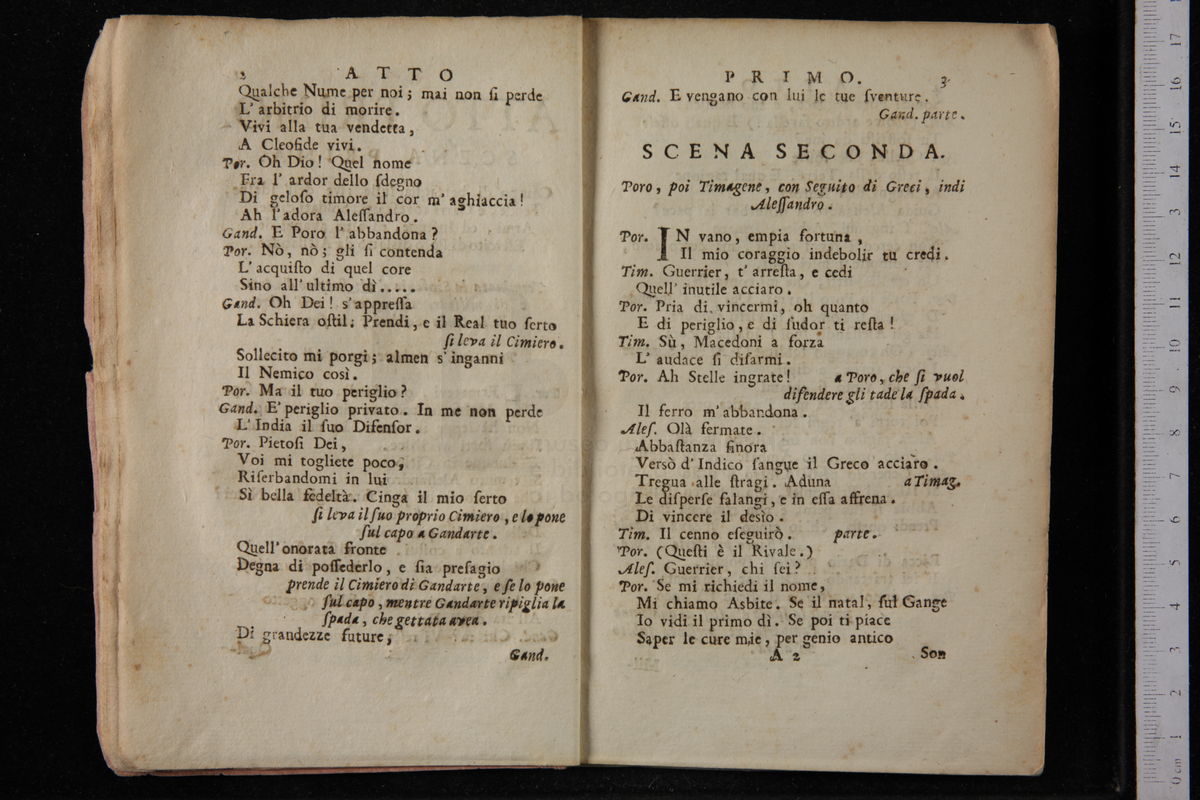 2 ATTO
Qualche Nume per noi; mai non ſi perde
L'arbitrio di morire.
Vivi alla tua vendetta,
A Cleofide vivi.
Por. Oh Dio! Quel nome
Fra l'ardor dello ſdegno
Di geloſo timore il cor m'aghiaccia!
Ah l'adora Aleſſandro.
Gand. E Poro l'abbandona?
Por. Nò, nò; gli ſi contenda
L'acquiſto di quel core
Sino all'ultimo dì.....
Gand. Oh Dei! s'appreſſa
La Schiera oſtil; Prendi, e il Real tuo ſerto
ſi leva il Cimiero.
Sollecito mi porgi; almen s'inganni
Il Nemico così.
Por. Ma il tuo periglio?
Gand. E' periglio privato. In me non perde
L'India il ſuo Difenſor.
Por. Pietoſi Dei,
Voi mi togliete poco,
Riſerbandomi in lui
Sì bella fedeltà. Cinga il mio ſerto
ſi leva il ſuo proprio Cimiero, e lo pone
ſul capo a Gandarte.
Quell'onorata fronte
Degna di poſſederlo, e ſia preſagio
prende il Cimiero di Gandarte, e ſe lo pone
ſul capo, mentre Gandarte ripiglia la
ſpada, che gettata avea.
Di grandezze future,
Gand.
PRIMO. 3
Gand. E vengano con lui le tue ſventure.
Gand. parte.
SCENA SECONDA.
Poro, poi Timagene, con Seguito di Greci, indi
Aleſſandro.
Por. IN vano, empia fortuna,
Il mio coraggio indebolir tu credi.
Tim. Guerrier, t'arreſta, e cedi
Quell' inutile acciaro.
Por. Pria di vincermi, oh quanto
E di periglio, e di ſudor ti reſta!
Tim. Sù, Macedoni a forza
L'audace ſi diſarmi.
Por. Ah Stelle ingrate! a Poro, che ſi vuol
difendere gli cade la ſpada.
Il ferro m'abbandona.
Aleſ. Olà fermate.
Abbaſtanza finora
Versò d'Indico ſangue il Greco acciaro.
Tregua alle ſtragi. Aduna a Timag.
Le diſperſe falangi, e in eſſa affrena.
Di vincere il desìo.
Tim. Il cenno eſeguirò. parte.
Por. (Queſti è il Rivale.)
Aleſ. Guerrier, chi ſei?
Por. Se mi richiedi il nome,
Mi chiamo Asbite. Se il natal, ſul Gange
Io vidi il primo dì. Se poi ti piace
Saper le cure mie, per genio antico
A 2 Son